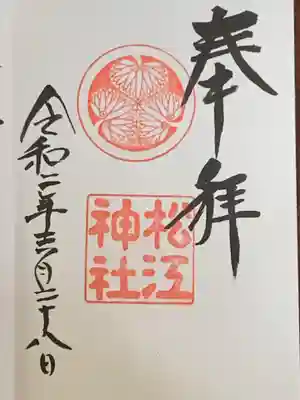 奉拝
松江
神社
令和二年十二月二十八日